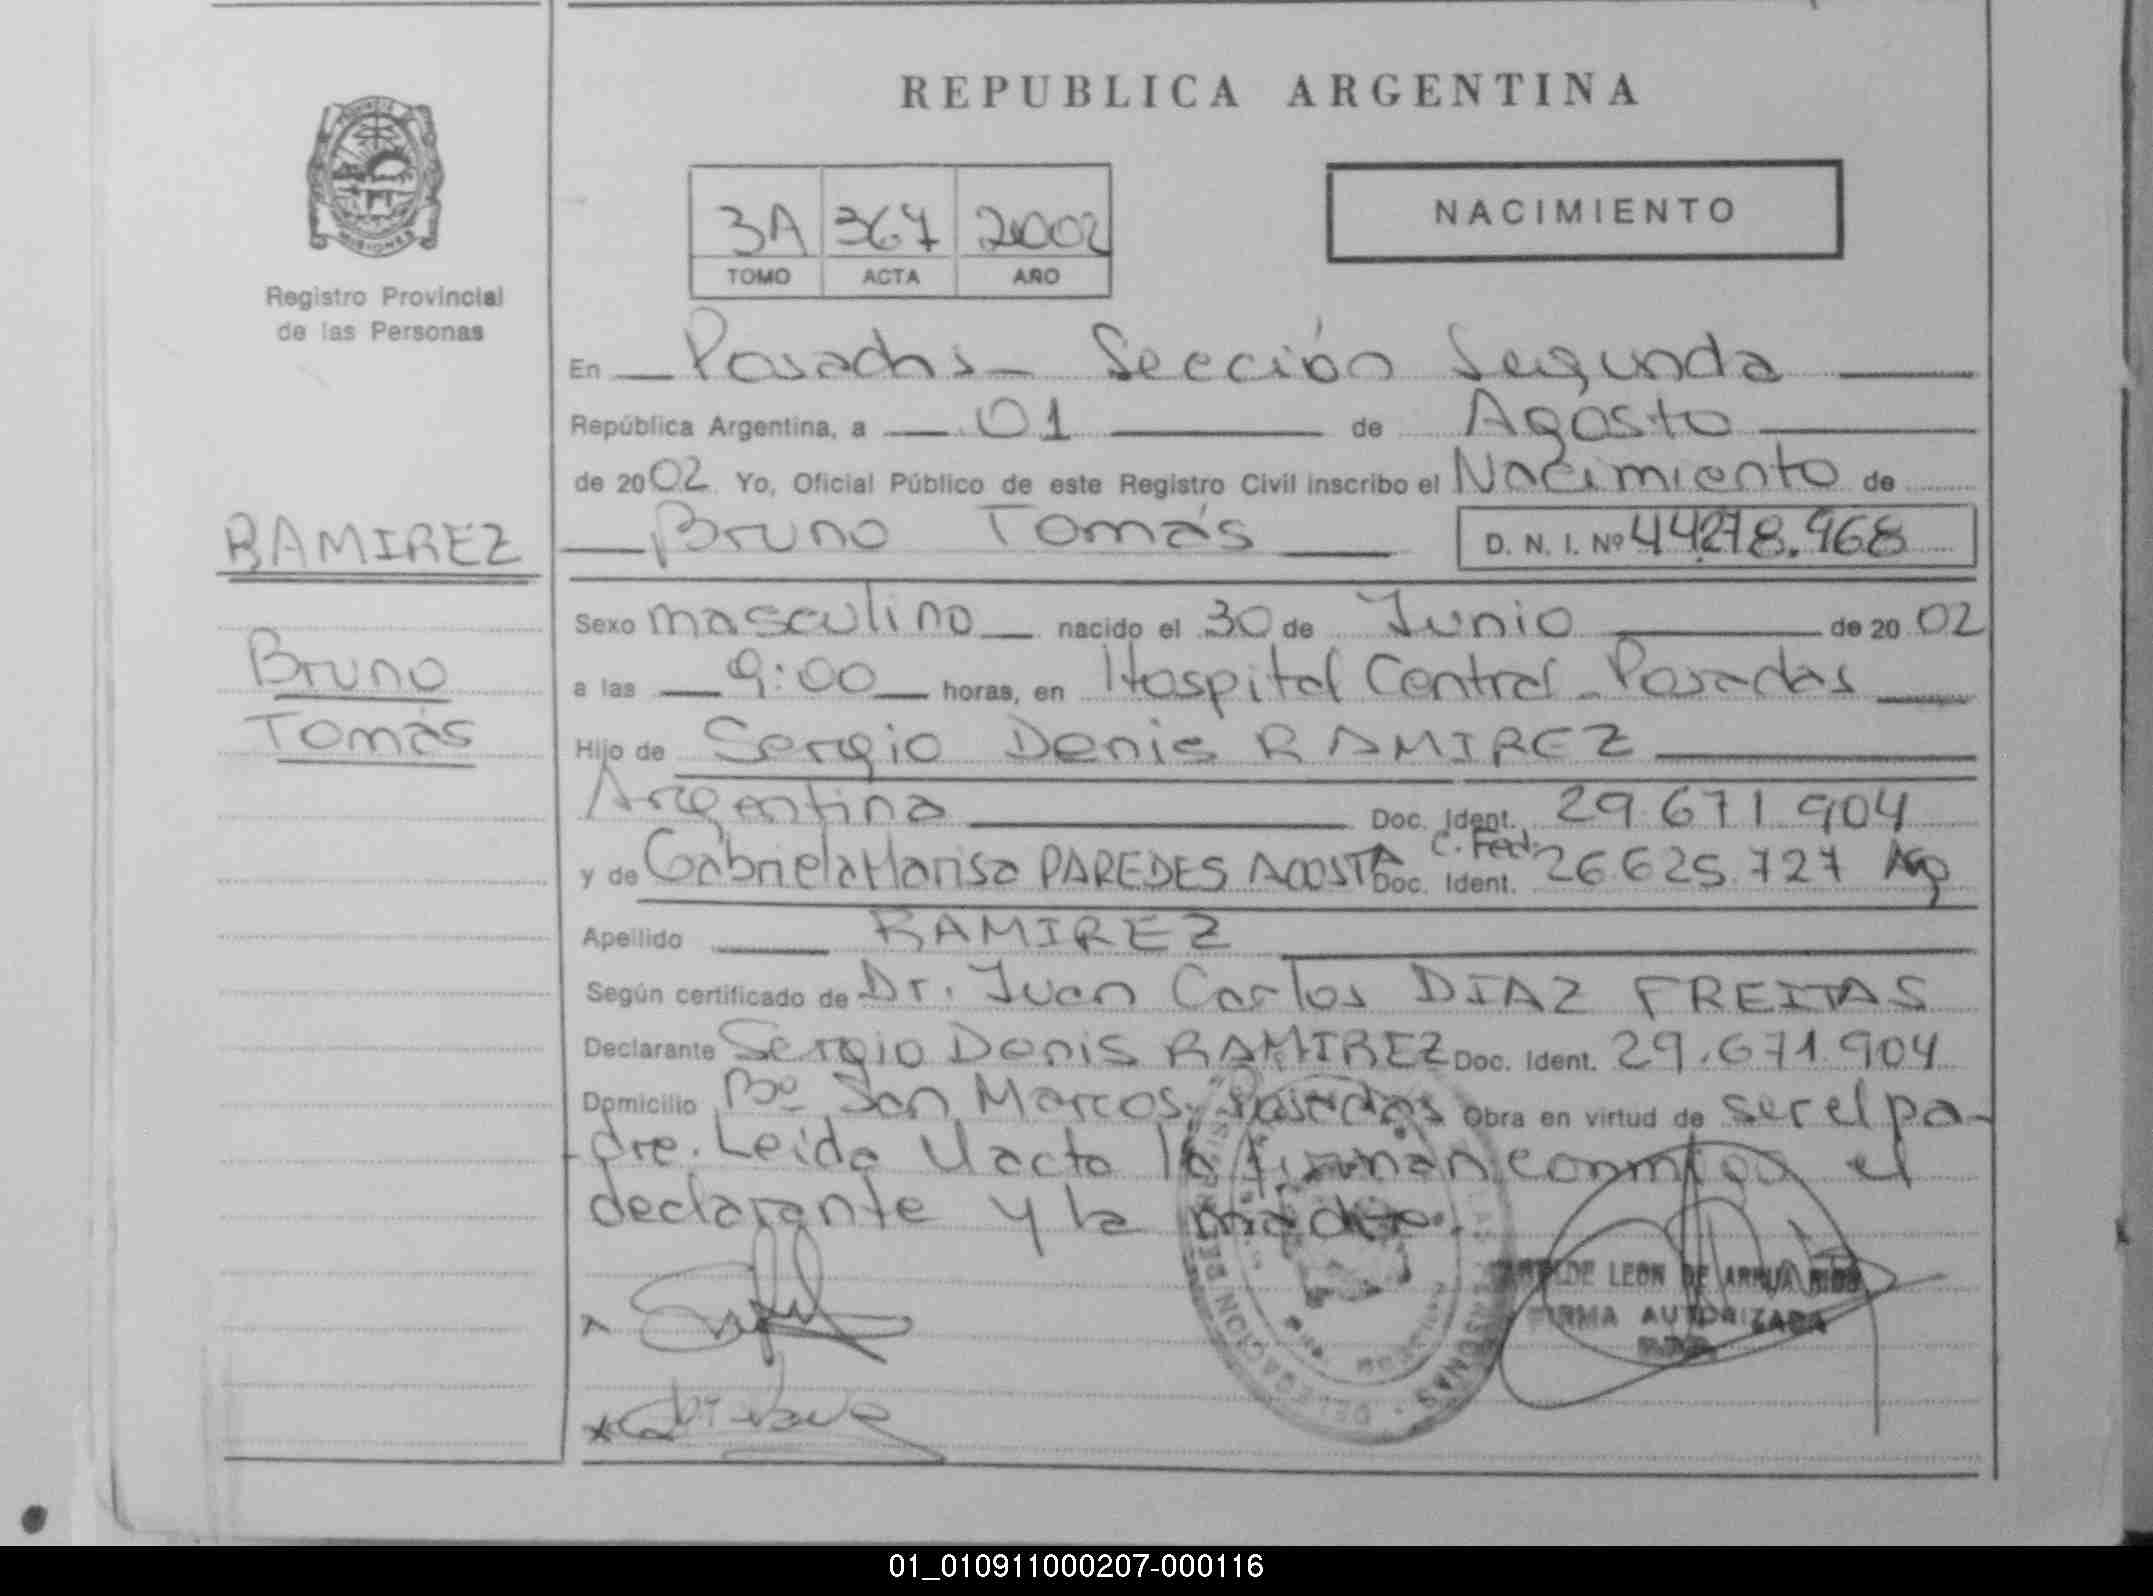 REPUBLICA ARGENTINA
3A 367 2002
TOMO ACTA AÑO
NACIMIENTO
MISIONES
Registro Provincial
de las Personas
En Posadas - Sección Segunda
República Argentina, a 01 de Agosto
de 2002 Yo, Oficial Público de este Registro Civil inscribo el Nacimiento de
RAMIREZ
Bruno Tomás D. N. I. Nº 44278.968
Sexo masculino nacido el 30 de Junio de 2002
Bruno
a las 9:00 horas, en Hospital Central - Posadas
Tomás
Hijo de Sergio Denis RAMIREZ
Argentina Doc. Ident. 29.671.904
y de Gabriela Marisa PAREDES ACOSTA Doc. Ident. C. Fed. 26.625.727 Arg
Apellido RAMIREZ
Según certificado de Dr. Juan Carlos DIAZ FREITAS
Declarante Sergio Denis RAMIREZ Doc. Ident. 29.671.904
Domicilio Bº San Marcos, Posadas Obra en virtud de ser el pa-
dre. Leida el acta la firman conmigo el
declarante y la madre.
DE LEON DE
FIRMA AUTORIZADA
DELEGACION
01_010911000207-000116